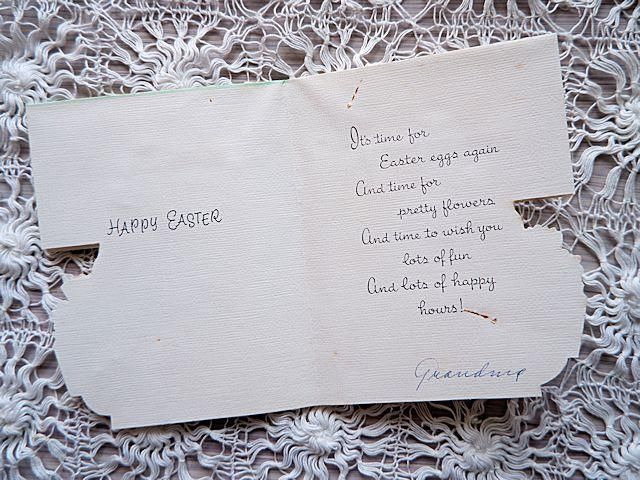 HAPPY EASTER
It's time for
Easter eggs again
And time for
pretty flowers
And time to wish you
lots of fun
And lots of happy
hours!
Grandma